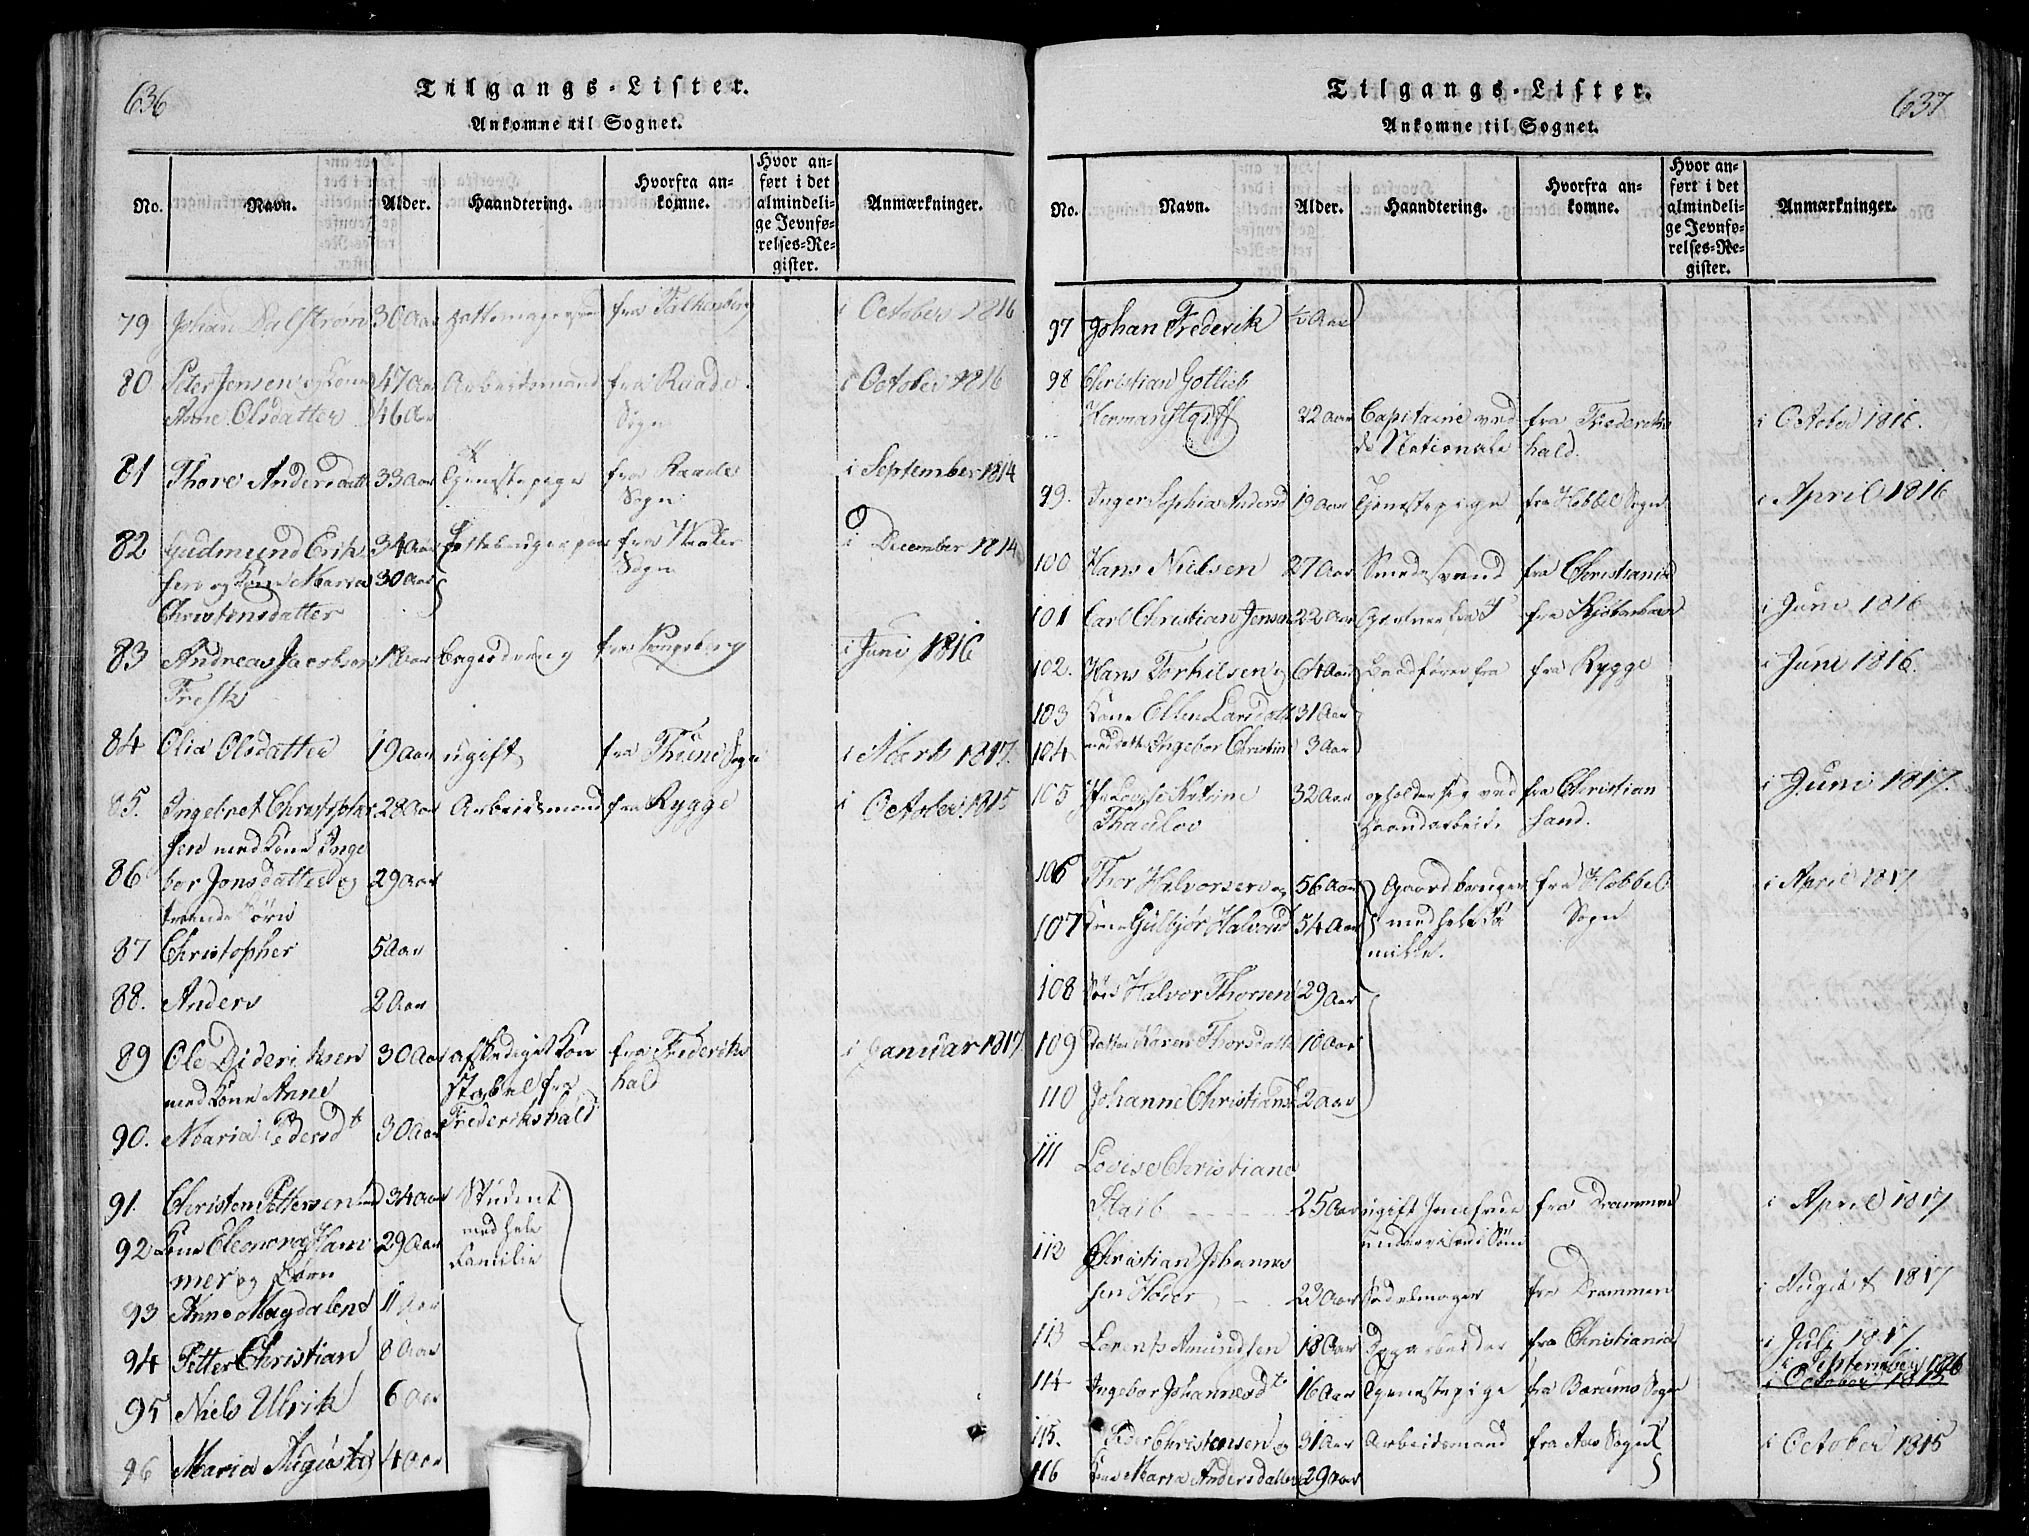 636
Tilgangs-Lister.
Ankomne til Sognet.
No. Navn. Alder. Haandtering. Hvorfra ankomne. Hvor anført i det almindelige Jevnførelses-Register. Anmærkninger.
79 Johan Dalstrøm 30 Aar fra Falkenberg i October 1816
80 Peter Jensen og Kone 47 Aar Arbeidsmand fra Raade i October 1816
Anne Olsdatter 46 Aar Sogn
81 Thore Andersdatt 33 Aar Tjenestepige fra Raade i September 1814
Sogn
82 Gudmund Erik 34 Aar fra Waaler i December 1814
sen og Kone Maria 30 Aar Sogn
Christensdatter
83 Andreas Jacobsen fra Kongsberg i Juni 1816
Fresk
84 Olia Olsdatter 19 Aar ugift fra Thune Sogn i Marts 1817.
85. Ingebret Christopher 28 Aar Arbeidsmand fra Rygge i October 1815
sen med Kone Inge
86 bor Jonsdatter og 29 Aar
Børn
87 Christopher 5 Aar
88. Anders 2 Aar
89 Ole Dideriksen 30 Aar afskediget Kon fra Frederiks i Januar 1817
med Kone Anne stabel fra hald
90. Maria Pedersdt 30 Aar Frederikshald
91. Christen Pettersen med 34 Aar Student
92 Kone Eleonora Ham 29 Aar med hele
mer og Børn Familie
93 Anne Magdalena 11 Aar
94 Petter Christian 8 Aar
95 Niels Ulrik 6 Aar
96 Maria Augusta 4 Aar
637
Tilgangs-Lister.
Ankomne til Sognet.
No. Navn. Alder. Haandtering. Hvorfra ankomne. Hvor anført i det almindelige Jevnførelses-Register. Anmærkninger.
97 Johan Frederik ½ Aar
98 Christian Gotlieb
Hermanstorff 22 Aar Capitaine ved fra Frederiks i October 1816.
de Nationale hald.
99. Inger Sophia Andersd 19 Aar Tjenestepige fra Hobbel Sogn i April 1816
100 Hans Nielsen 27 Aar Smedesvend fra Christiania
101 Carl Christian Jensen 22 Aar fra Kjøbenhavn i Juni 1816
102. Hans Torkilsen og 64 Aar fra Rygge i Juni 1816.
103 Kone Ellen Larsdatt 31 Aar
104 med datt Ingebor Christine 3 Aar
105 Lovise Katrine 32 Aar opholder sig ved fra Christian i Juni 1817.
Thaulov Haandarbeide sand.
106 Thor Halvorsen og 56 Aar Gaardbruger fra Hobbel i April 1817
107 Kone Gulbjør Halvorsd 54 Aar med hele Fa Sogn
milie.
108 Søn Halvor Thorsen 29 Aar
109 Datter Karen Thorsdatt 10 Aar
110 Johanne Christians 2 Aar
111 Lovise Christiane
Staib 25 Aar ugift Jomfrue fra Drammen i April 1817
112 Christian Johannes
sen Hoier 23 Aar Sadelmager fra Drammen i August 1817
113 Lorents Amundsen 18 Aar fra Christiania i Juli 1817
i September 1816
114 Ingebor Johannesdt 16 Aar Tjenestepige fra Bærums Sogn i October 1815
115. Peder Christensen og 31 Aar Arbeidsmand fra Aas Sogn i October 1815
116 Kone Maria Andersdatter 29 Aar